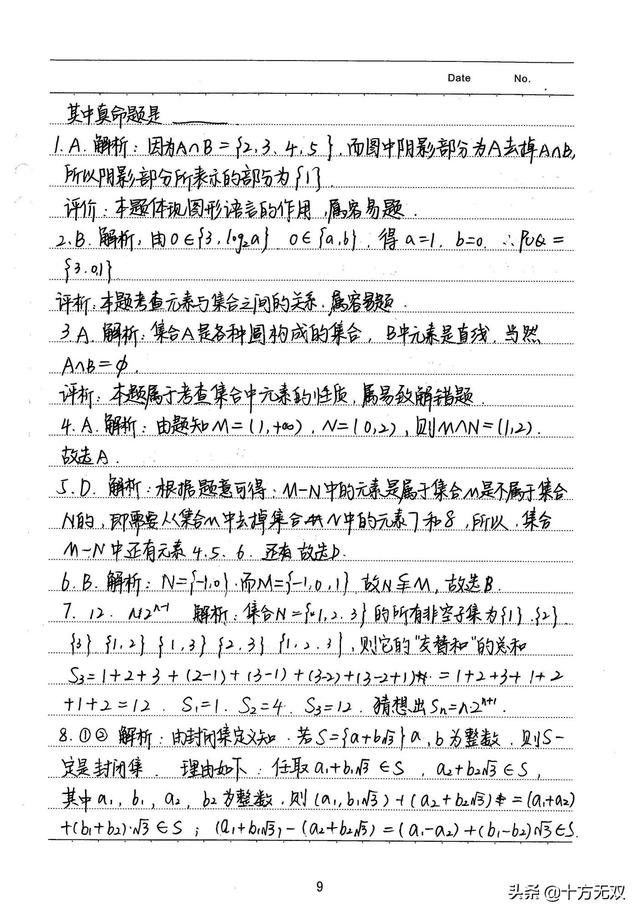 Date No.
其中真命题是 ______
1.A.解析:因为A∩B={2,3,4,5},而图中阴影部分为A去掉A∩B,
所以阴影部分所表示的部分为{1}.
评价:本题体现图形语言的作用,属容易题.
2.B.解析,由0∈{3,log₂a} 0∈{a,b}.得a=1.b=0.∴P∪Q=
{3.0.1}
评析:本题考查元素与集合之间的关系.属容易题.
3 A.解析:集合A是各种圆构成的集合,B中元素是直线.当然
A∩B=∅.
评析:本题属于考查集合中元素的性质,属易致解错题.
4.A.解析:由题知M=(1,+∞),N=(0,2),则M∩N=(1,2).
故选A.
5.D.解析:根据题意可得:M-N中的元素是属于集合M是不属于集合
N的,即需要从集合M中去掉集合N中的元素7和8,所以.集合
M-N中还有元素4.5.6.还有.故选D.
6.B.解析:N={-1,0}.而M={-1,0,1}.故N⫋M,故选B.
7. 12. n·2ⁿ⁻¹ 解析:集合N={1,2.3}的所有非空子集为{1}.{2}
{3} {1,2} {1,3} {2,3} {1,2,3},则它的"交替和"的总和
S₃=1+2+3+(2-1)+(3-1)+(3-2)+(3-2+1)=1+2+3+1+2
+1+2=12. S₁=1. S₂=4. S₃=12.猜想出Sn=n·2ⁿ⁺¹.
8.①②解析:由封闭集定义知.若S={a+b√3}a,b为整数.则S一
定是封闭集. 理由如下:任取a₁+b₁√3∈S,a₂+b₂√3∈S,
其中a₁,b₁,a₂,b₂为整数.则(a₁,b₁√3)+(a₂+b₂√3)=(a₁+a₂)
+(b₁+b₂)·√3∈S;(a₁+b₁√3)-(a₂+b₂√3)=(a₁-a₂)+(b₁-b₂)√3∈S.
9
头条@十方无双